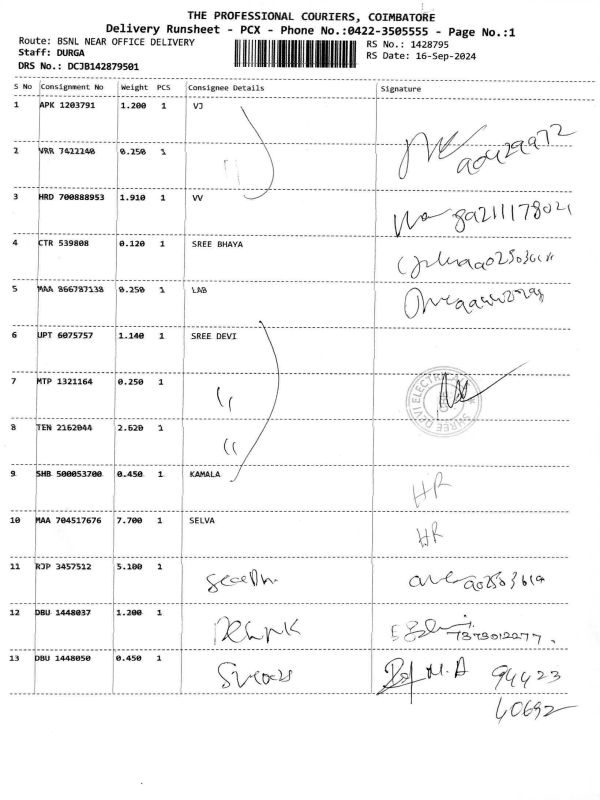 THE PROFESSIONAL COURIERS, COIMBATORE
Delivery Runsheet - PCX - Phone No.:0422-3505555 - Page No.:1
Route: BSNL NEAR OFFICE DELIVERY
RS No.: 1428795
Staff: DURGA
RS Date: 16-Sep-2024
DRS No.: DCJB142879501
S No Consignment No Weight PCS Consignee Details Signature
1 APK 1203791 1.200 1 VJ
2 VRR 7422240 0.250 1
3 HRD 700888953 1.910 1 VV
4 CTR 539808 0.120 1 SREE BHAYA
5 MAA 866787138 0.250 1 LAB
6 UPT 6075757 1.140 1 SREE DEVI
7 MTP 1321164 0.250 1 "
SHREE DEVI ELECTRICALS
8 TEN 2162044 2.620 1 "
9 SHB 500053700 0.450 1 KAMALA HR
10 MAA 704517676 7.700 1 SELVA HR
11 RJP 3457512 5.100 1
12 DBU 1448037 1.200 1
13 DBU 1448050 0.450 1 M.A 94423
40692